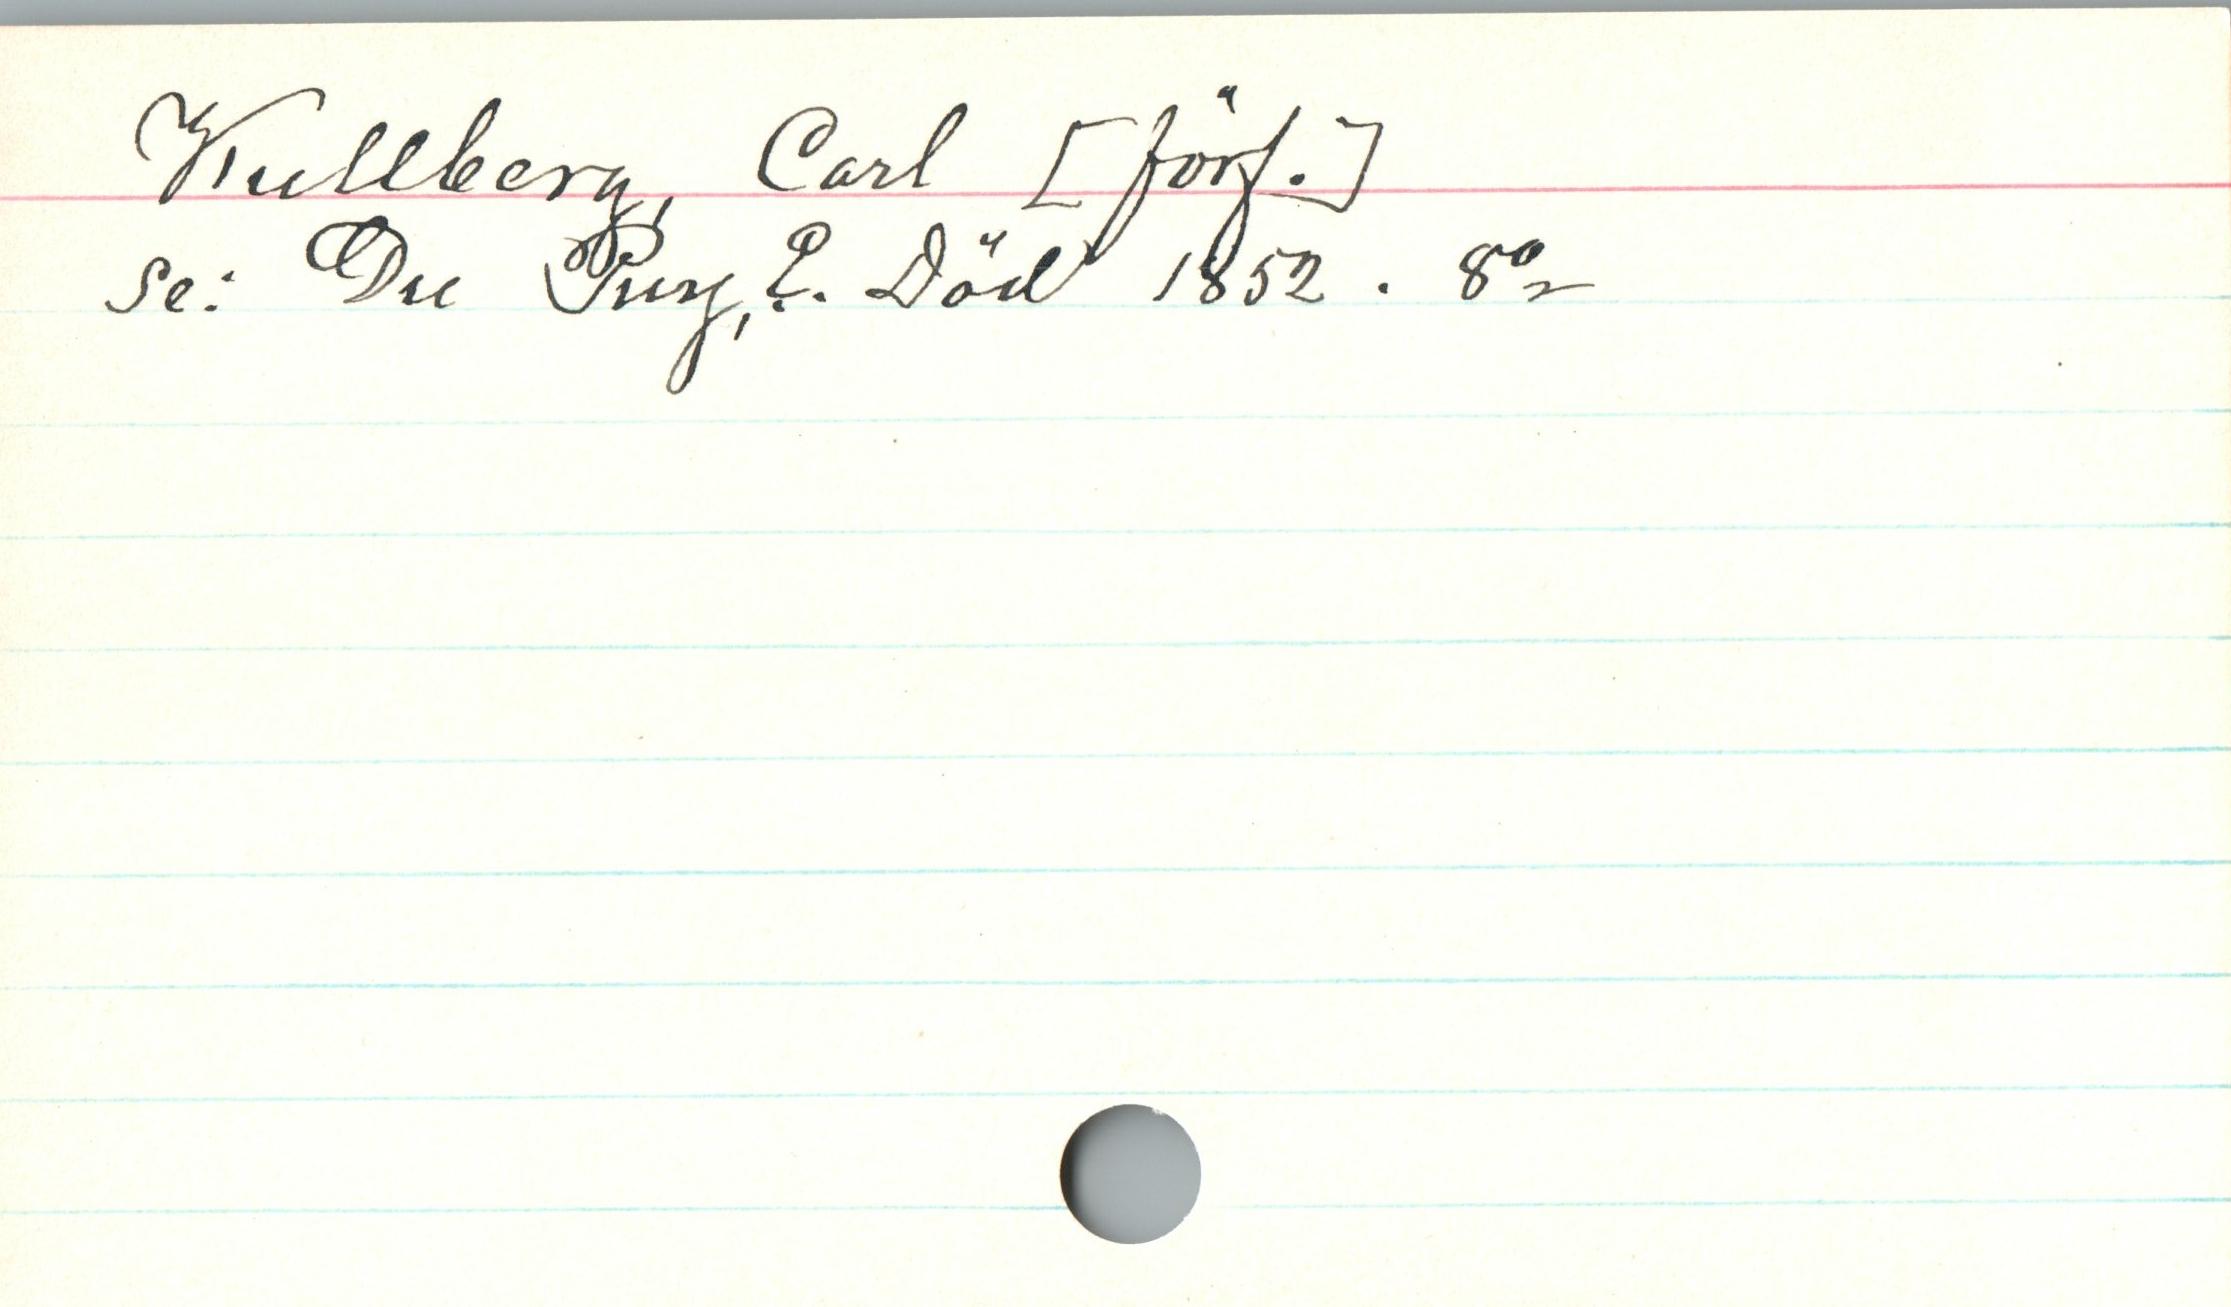 Kullberg, Carl [förf.]
se: Du Puy, E. Död 1852. 8:o